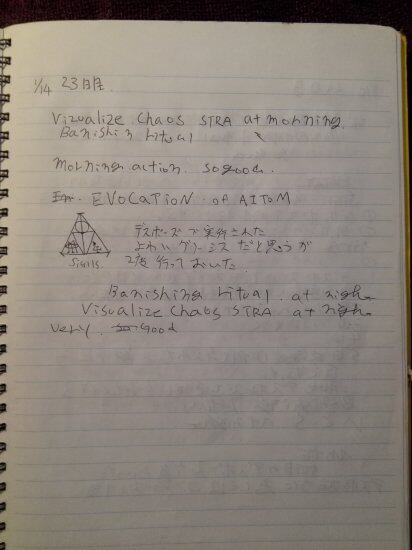 1/14 23日目.
Vizualize Chaos STRA at morning.
Banishin ritual
morning action. so good.
EVOCATION of AITOM
デスポーズで実行された
よわいグリーミスだと思うが
2度行っておいた
Sigils.
Banishing ritual. at nigh
Visualize Chaos STRA at nigh
Very. Good